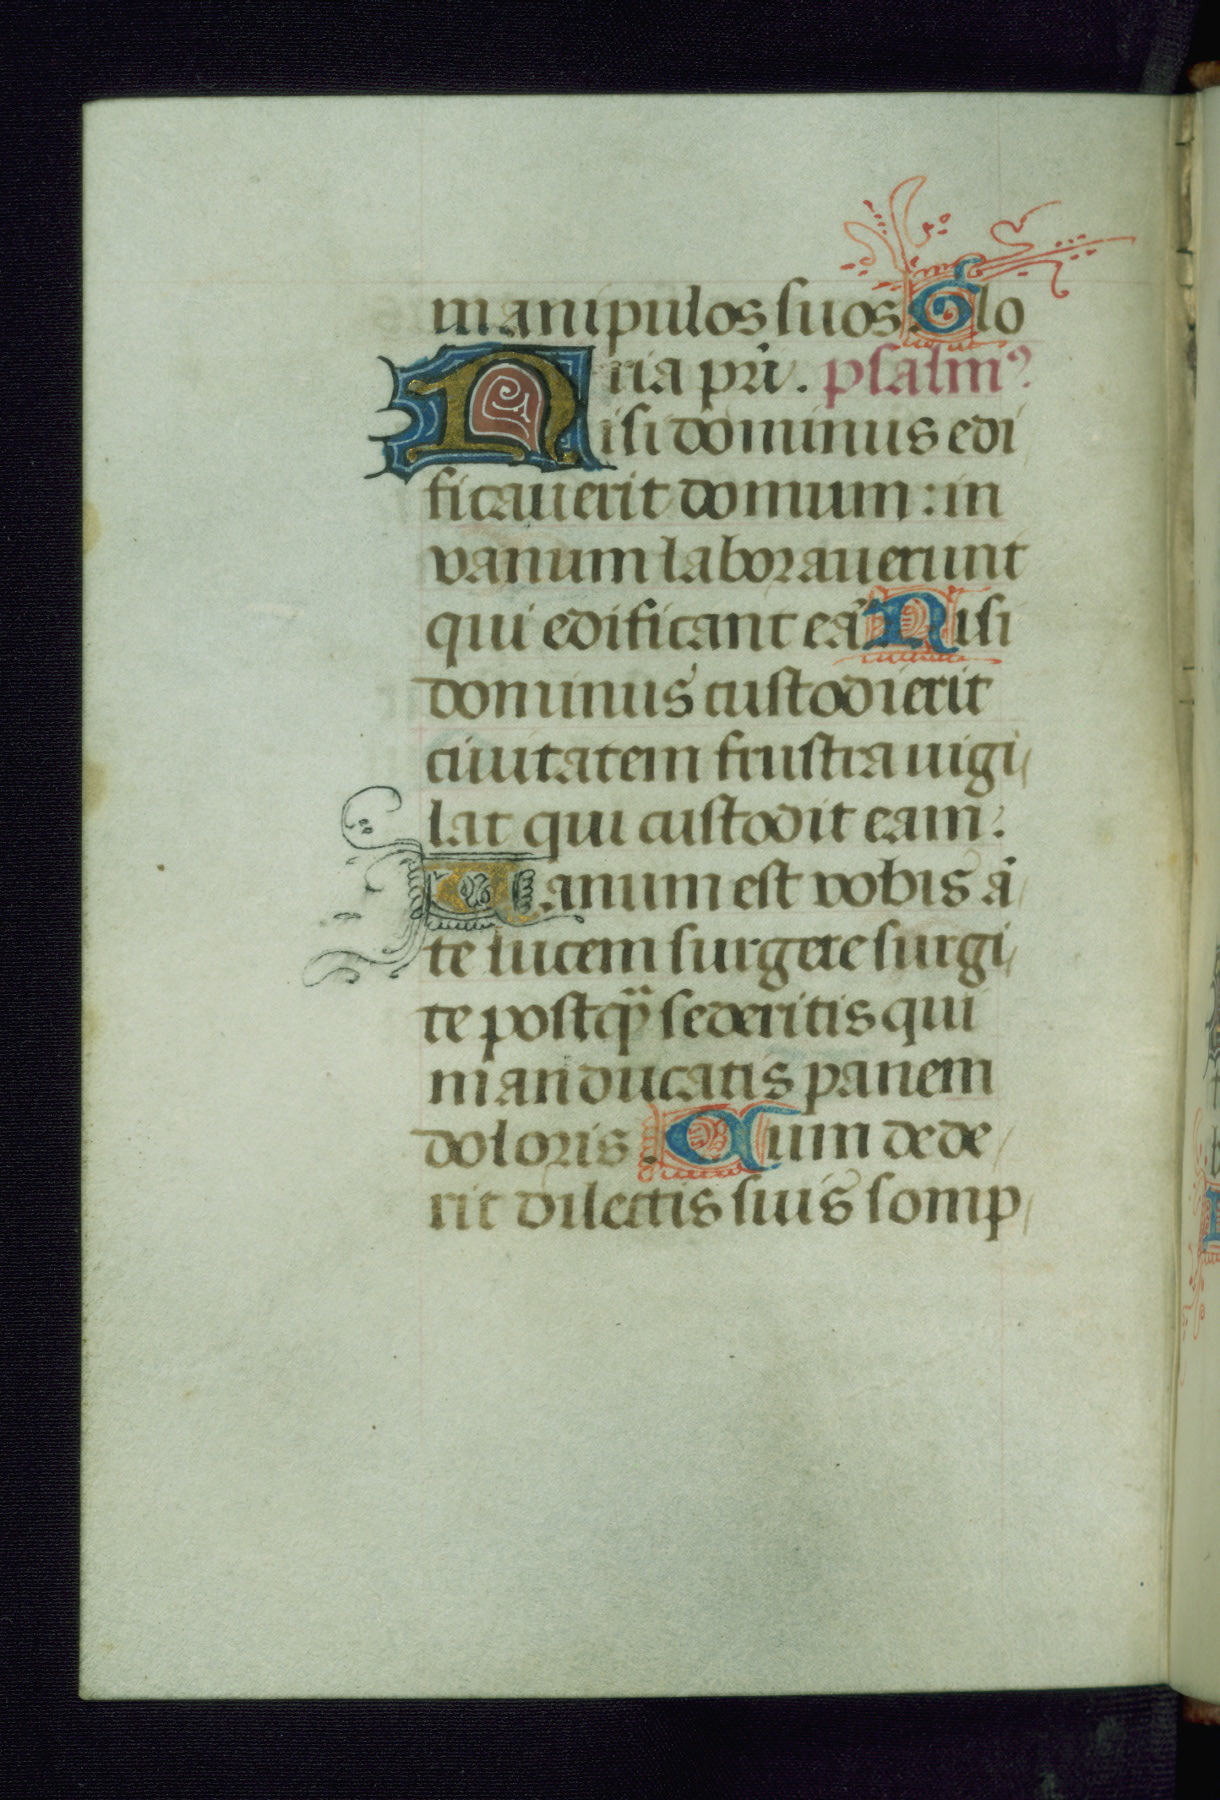 manipulos suos. Glo
ria pr̃i. psalmꝰ
Nisi dominus edi
ficauerit domum: in
vanum laborauerunt
qui edificant eã Nisi
dominus custodierit
ciuitatem frustra uigi/
lat qui custodit eam.
Uanum est vobis ã/
te lucem surgere surgi/
te postq̃ sederitis qui
manducatis panem
doloris. Cum dede/
rit dilectis suis somp/